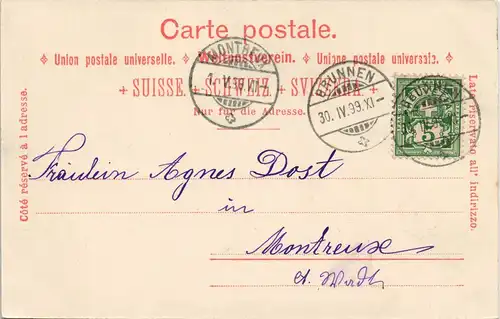 Carte postale.
Union postale universelle. Weltpostverein. Unione postale universale.
SUISSE. SCHWEIZ. SVIZZERA.
Nur für die Adresse.
Côté réservé à l'adresse.
Lato riservato all' indirizzo.
BRUNNEN
30. IV. 99. XI–
1. V. 99. VII–
5
Fräulein Agnes Dost
in
Montreux